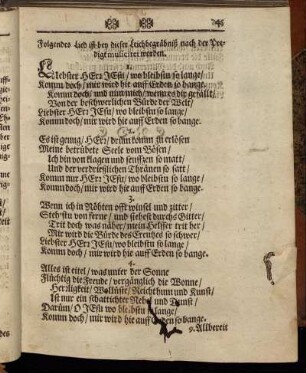 245
Folgendes Lied ist bey dieser Leichbegräbniß nach der Pre-
digt musiciret worden.
1.
Liebster HErr JEsu, wo bleibstu so lange/
Komm doch/ mir wird hie auff Erden so bange.
Komm doch/ und nimm mich/ wenn es dir gefällt/
Von der beschwerlichen Bürde der Welt/
Liebster HErr JEsu, wo bleibstu so lange/
Komm doch/ mir wird hie auff Erden so bange.
2.
Es ist genug/ HErr/ drum komm zu erlösen
Meine betrübete Seele vom Bösen
Ich bin von klagen und seufftzen so matt/
Und der verdrießlichen Thränen so satt/
Komm nur HErr JEsu, wo bleibstu so lange/
Komm doch/ mir wird hie auff Erden so bange.
3.
Wenn ich in Nöhten offt winsel und zitter/
Stehstu von ferne/ und siehest durchs Gitter/
Trit doch was näher/ mein Helffer trit her/
Mir wird die Bürde des Creutzes so schwer/
Liebster HErr JEsu, wo bleibstu so lange/
Komm doch/ mir wird hie auff Erden so bange.
4.
Alles ist eitel/ was unter der Sonne
Flüchtig die Freude/ vergänglich die Wonne/
Herrligkeit/ Wollüste/ Reichthum und Kunst/
Ist nur ein schattichter Nebel und Dunst/
Darum/ O JEsu wo bleibstu so lange/
Komm doch/ mir wird hie auff Erden so bange.
5. Allbereit